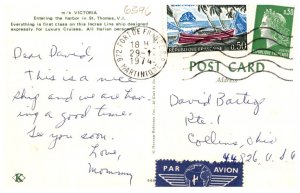 m/s VICTORIA
Entering the harbor in St. Thomas, V.I.
Everything is first class on this Incres Line ship designed
expressly for Luxury Cruises. All Italian personnel
6596
FORT DE FRANCE
18 H
29-1
1974
MARTINIQUE
REPUBLIQUE FRANCAISE 0,50
0,50
POST CARD
Address
Dear David,
This is a nice
ship and we are hav-
ing a good time.
See you soon.
Love,
Mommy
David
Rte. 1
Collins, Ohio
44826, U.S.G
PAR AVION
K